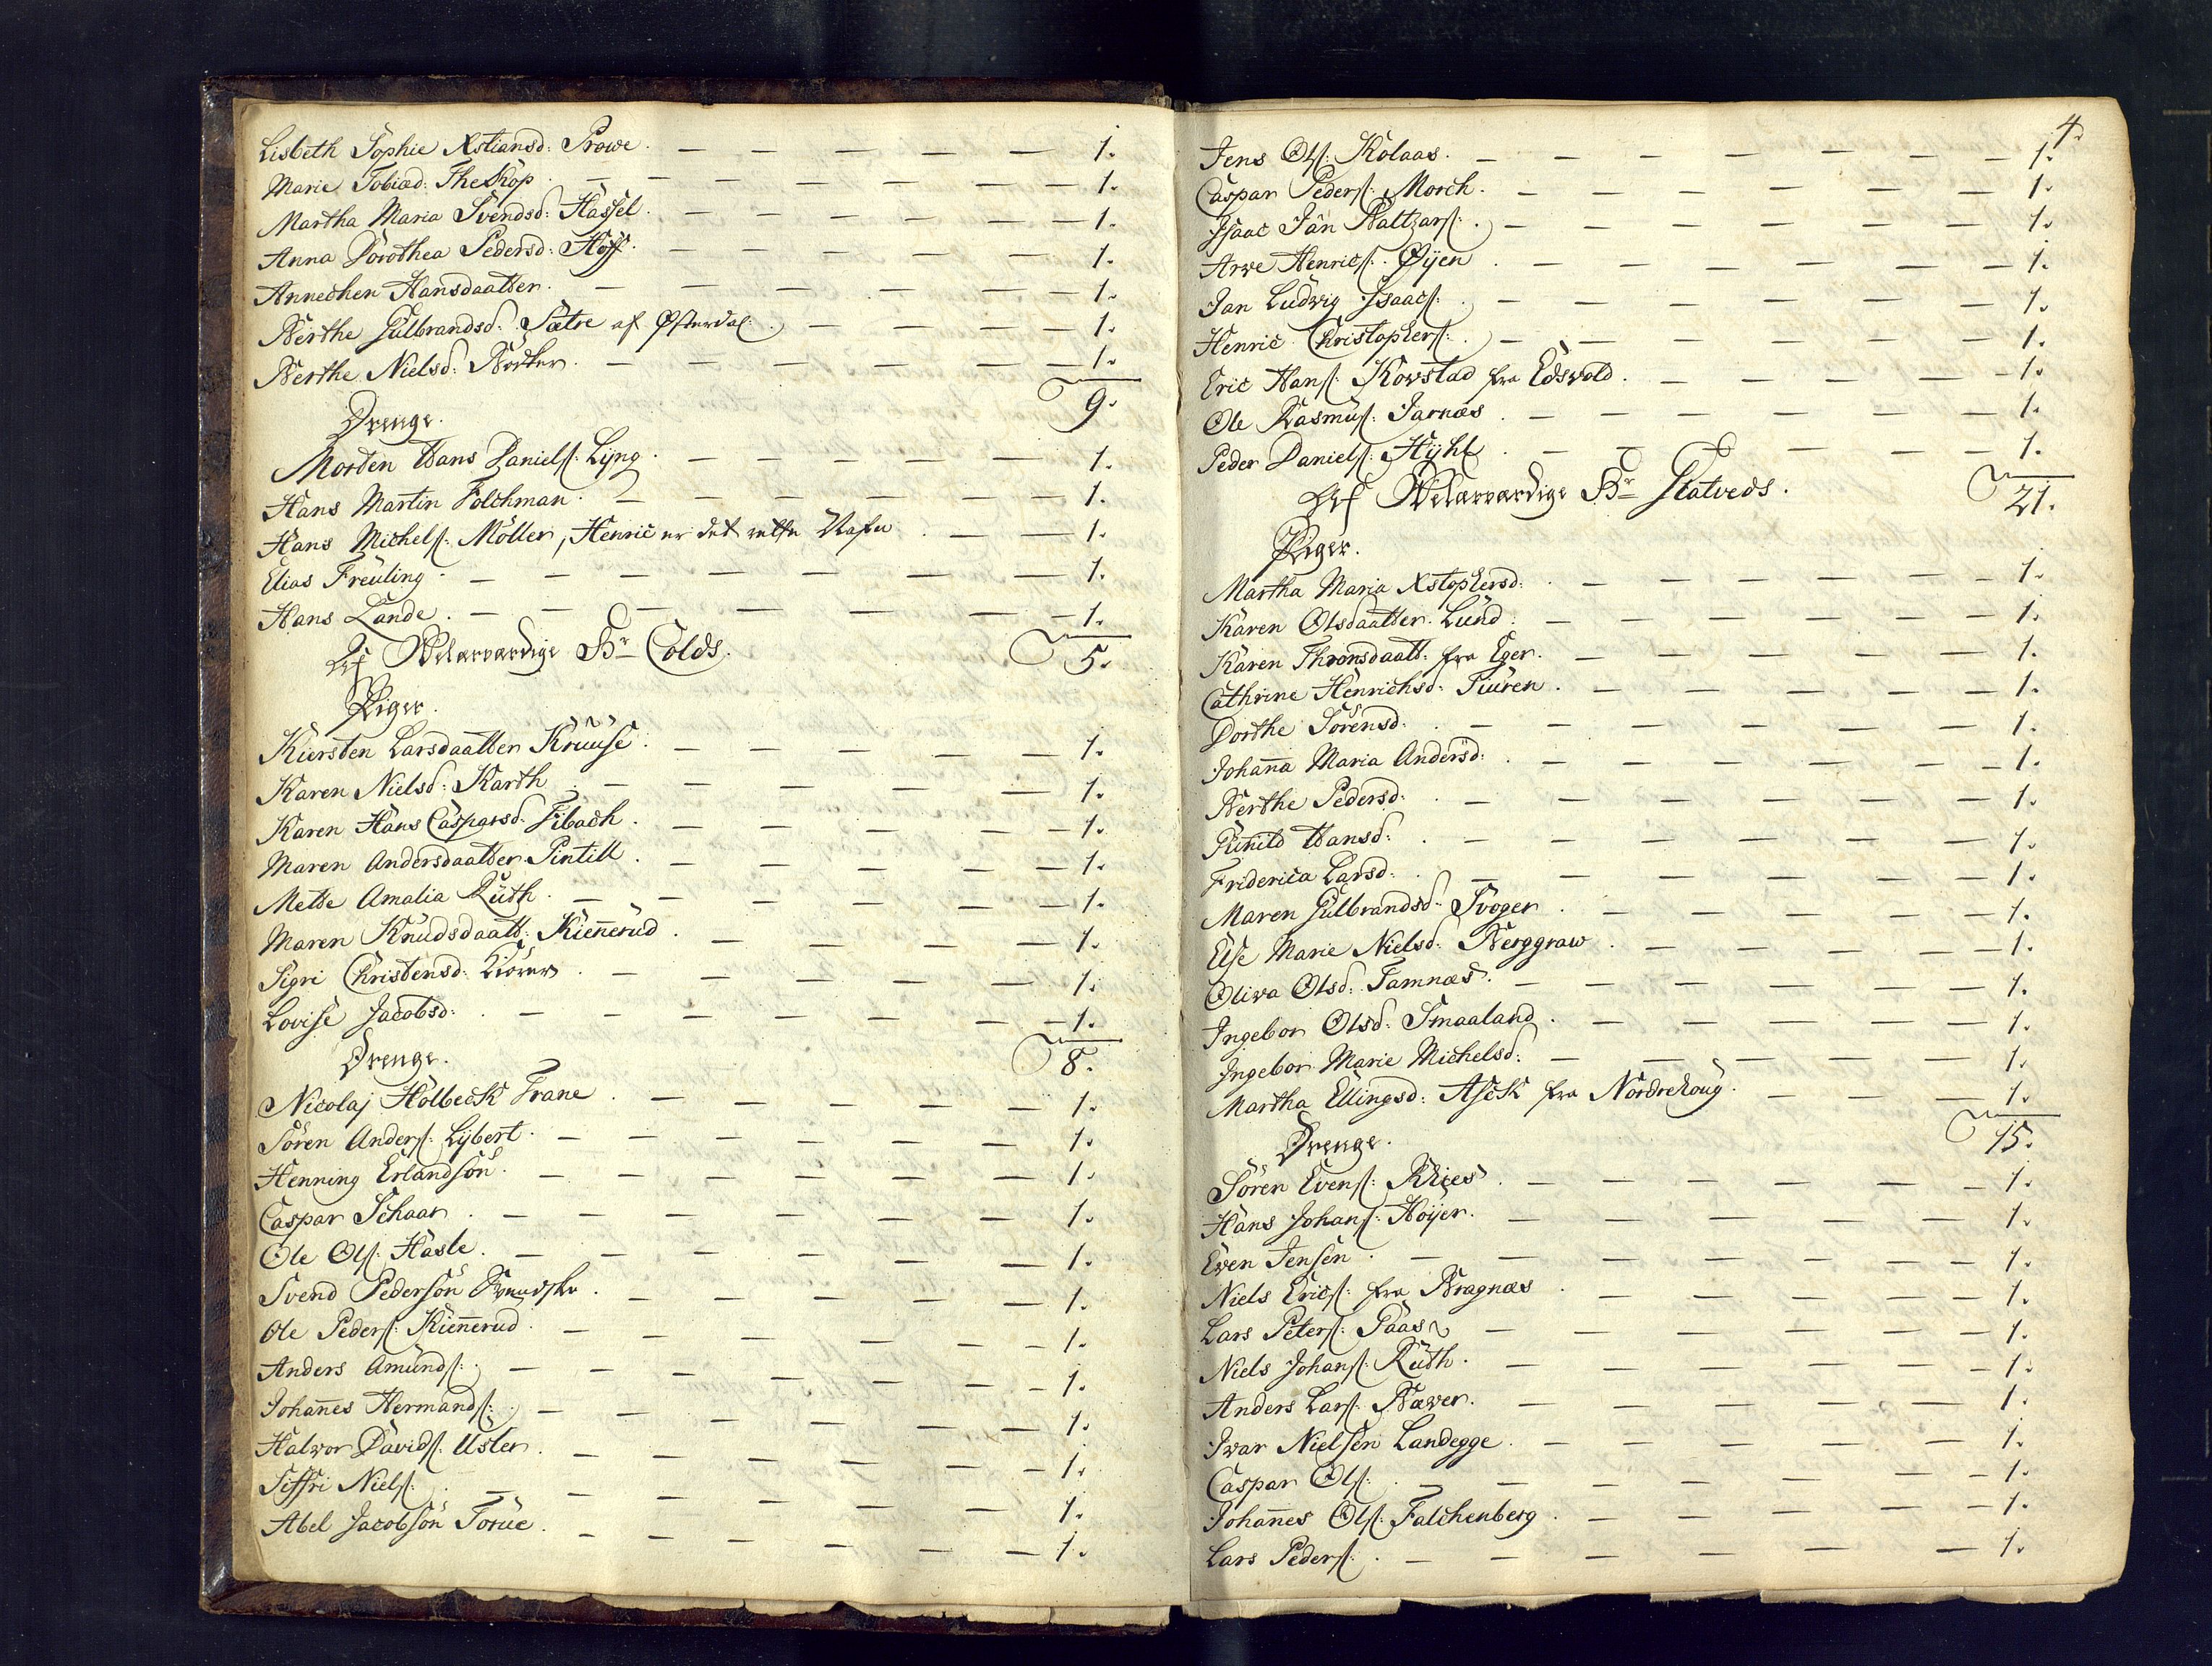 Lisbeth Sophie Xstiansd: Prowe. 1.
Marie Tobiæd: Theskop. 1.
Martha Maria Svendsd: Hassel. 1.
Anna Dorothea Pedersd: Hoff. 1.
Annechen Hansdaatter. 1.
Berthe Gulbrandsd: Sætre af Østerdal. 1.
Berthe Nielsd: 1.
9.
Drenge.
Morten Hans Daniels: Lÿng. 1.
Hans Martin Folchman. 1.
Hans Michels: Möller, Henric er det rette Nafn 1.
Elias Freuling. 1.
Hans Lande. 1.
Af Welærværdige Hr Colds. 5.
Piger.
Kiersten Larsdaatter Kruuse. 1.
Karen Nielsd: Karth. 1.
Karen Hans Caspersd: Fibach. 1.
Maren Andersdaatter Pintill. 1.
Mette Amalia Ruth. 1.
Maren Knudsdaatt: Kiennerud. 1.
Sigri Christensd: 1.
Lovise Jacobsd: 1.
8.
Drenge.
Nicolaj Holbeck Frane. 1.
Sören Anders: Lÿbert. 1.
Henning Erlandsön. 1.
Caspar Schaar. 1.
Ole Ols: Hasle. 1.
Svend Pedersön 1.
Ole Peders: Kiennerud. 1.
Anders Amunds: 1.
Johannes Hermands: 1.
Halvor Davids: Usler. 1.
Siffri Niels: 1.
Abel Jacobsön Torue. 1.
4.
Jens Ols: Kolaas. 1.
Caspar Peders: Morch. 1.
Isaac Jan Baltzars: 1.
Arve Henrics: Øÿen 1.
Jan Ludwig Isaacs: 1.
Henric Christophers: 1.
Eric Hans: Kovstad fra Edsvold. 1.
Ole Rasmus: Jarnæs 1.
Peder Daniels: Hÿhl 1.
Af Welærværdige Hr Slatveds. 21.
Piger.
Martha Maria Xstophersd: 1.
Karen Olsdaatter Lund. 1.
Karen Thronsdaatt: fra Eger. 1.
Cathrine Henrichsd: Siuren. 1.
Dorthe Sörensd: 1.
Johanna Maria Andersd: 1.
Berthe Pedersd: 1.
Hansd: 1.
Friderica Larsd: 1.
Maren Gulbrandsd: Svoger 1.
Else Marie Nielsd: Berggraw 1.
Oliva Olsd: Tamnæs. 1.
Ingebor Olsd: Smaaland. 1.
Ingebor Marie Michelsd: 1.
Martha Ellingsd: Asck fra Nordrehoug. 1.
15.
Drenge.
Sören Evens: 1.
Hans Johans: Hoÿer. 1.
Even Jensen. 1.
Niels Erics: fra Bragnæs 1.
Lars Peters: Paas 1.
Niels Johans: Ruth. 1.
Anders Lars: Bæver. 1.
Iver Nielsen Landegge. 1.
Caspar Ols: 1.
Johannes Ols: Falchenberg. 1.
Lars Peders: 1.